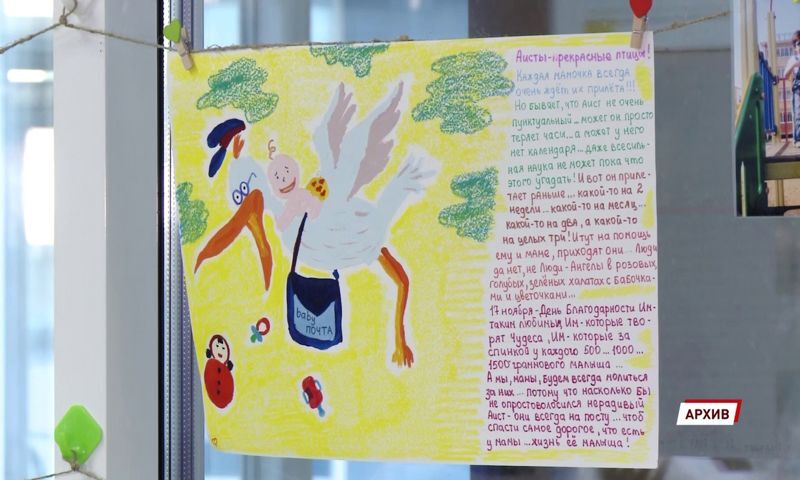 Аисты-прекрасные птицы!
Каждая мамочка всегда
очень ждёт их прилёта!!!
Но бывает, что Аист не очень
пунктуальный... может он просто
теряет часы... а может у него
нет календаря... даже всесиль-
ная наука не может пока что
этого угадать! И вот он приле-
тает раньше... какой-то на 2
недели... какой-то на месяц...
какой-то на два, а какой-то
на целых три! И тут на помощь
ему и маме, приходят они... Люди
да нет, не Люди-Ангелы в розовых,
голубых, зелёных халатах с Бабочка-
ми и цветочками...
17 ноября-День Благодарности Им-
таким любимым, Им-которые тво-
рят Чудеса, Им-которые за
спинкой у каждого 500... 1000...
1500 граммового малыша...
А мы, мамы, будем всегда молиться
за них... потому что насколько бы
не опростоволосился нерадивый
Аист-они всегда на посту... чтоб
спасти самое дорогое, что есть
у мамы... жизнь её малыша!
baby
почта
АРХИВ